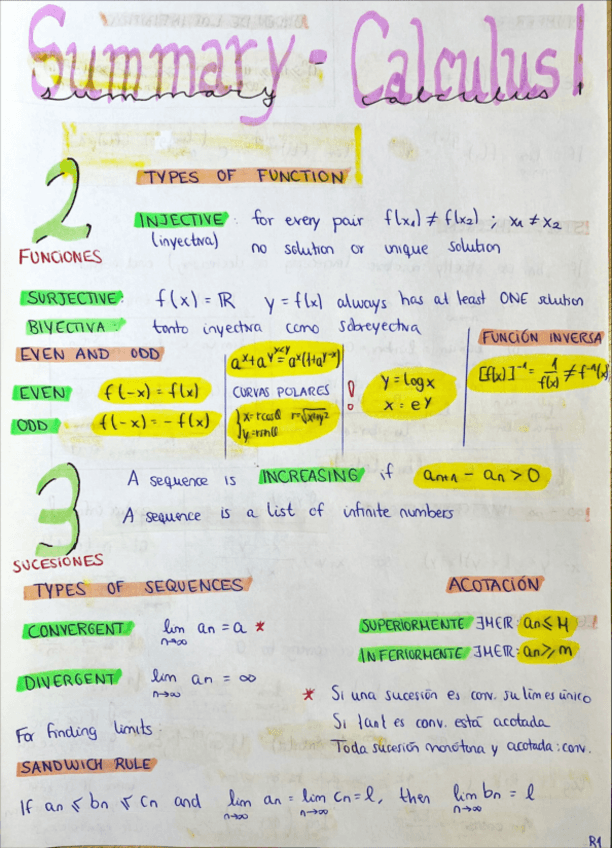 Summary - Calculus I
summary calculus I
2
TYPES OF FUNCTION
FUNCIONES
INJECTIVE: for every pair f(x₁) ≠ f(x₂) ; x₁ ≠ x₂
(inyectiva) no solution or unique solution
SURJECTIVE: f(x) = ℝ y = f(x) always has at least ONE solution
BIYECTIVA: tanto inyectiva como sobreyectiva
EVEN AND ODD
EVEN f(-x) = f(x)
ODD f(-x) = -f(x)
CURVAS POLARES
x=rcosθ
!
y = log x
x = e^y
FUNCIÓN INVERSA
[f(x)]⁻¹ = 1/f(x) ≠ f⁻¹(x)
3
SUCESIONES
A sequence is INCREASING if aₙ₊₁ - aₙ > 0
A sequence is a list of infinite numbers
TYPES OF SEQUENCES
CONVERGENT lim n→∞ aₙ = a *
DIVERGENT lim n→∞ aₙ = ∞
ACOTACIÓN
SUPERIORMENTE ∃M∈ℝ: aₙ ≤ M
INFERIORMENTE ∃m∈ℝ: aₙ ≥ m
* Si una sucesión es conv. su lim es único
Si {aₙ} es conv. está acotada
Toda sucesión monótona y acotada: conv.
For finding limits:
SANDWICH RULE
If aₙ ≤ bₙ ≤ cₙ and lim n→∞ aₙ = lim n→∞ cₙ = l, then lim n→∞ bₙ = l
R1